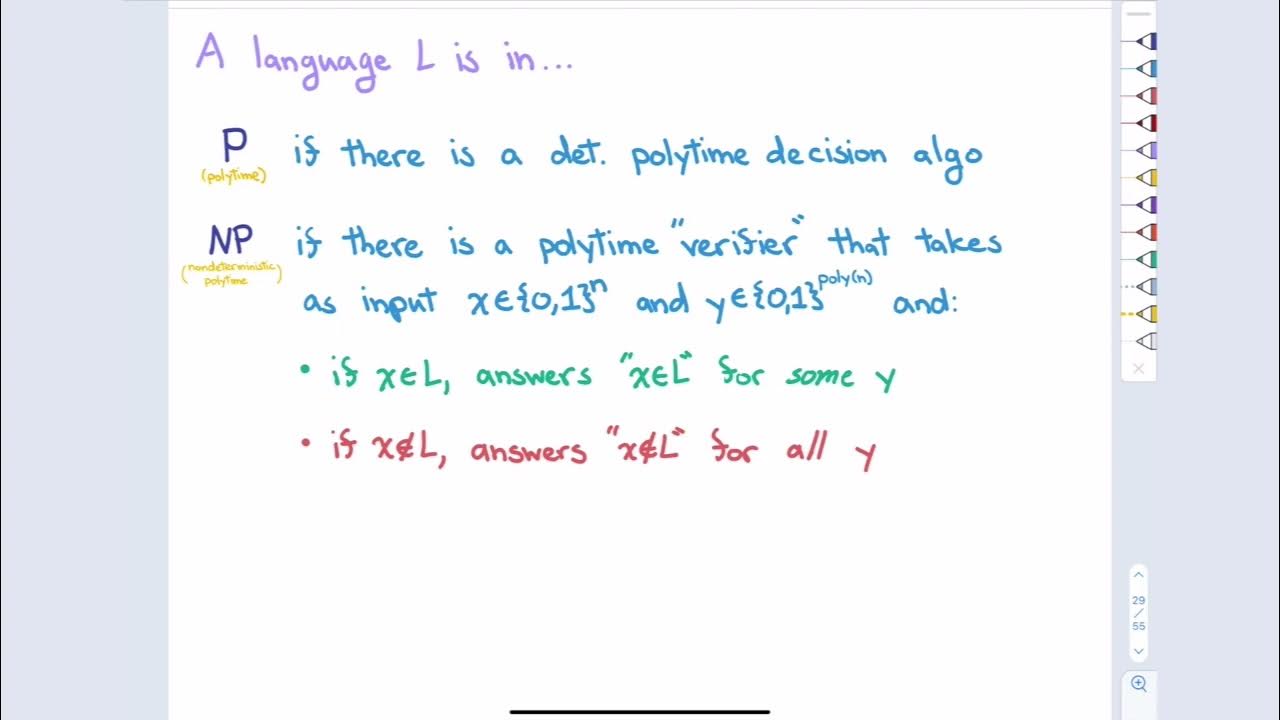 A language L is in...
P if there is a det. polytime decision algo
(polytime)
NP if there is a polytime "verifier" that takes
(nondeterministic polytime)
as input x∈{0,1}ⁿ and y∈{0,1}^poly(n) and:
• if x∈L, answers "x∈L" for some y
• if x∉L, answers "x∉L" for all y
29
/
55